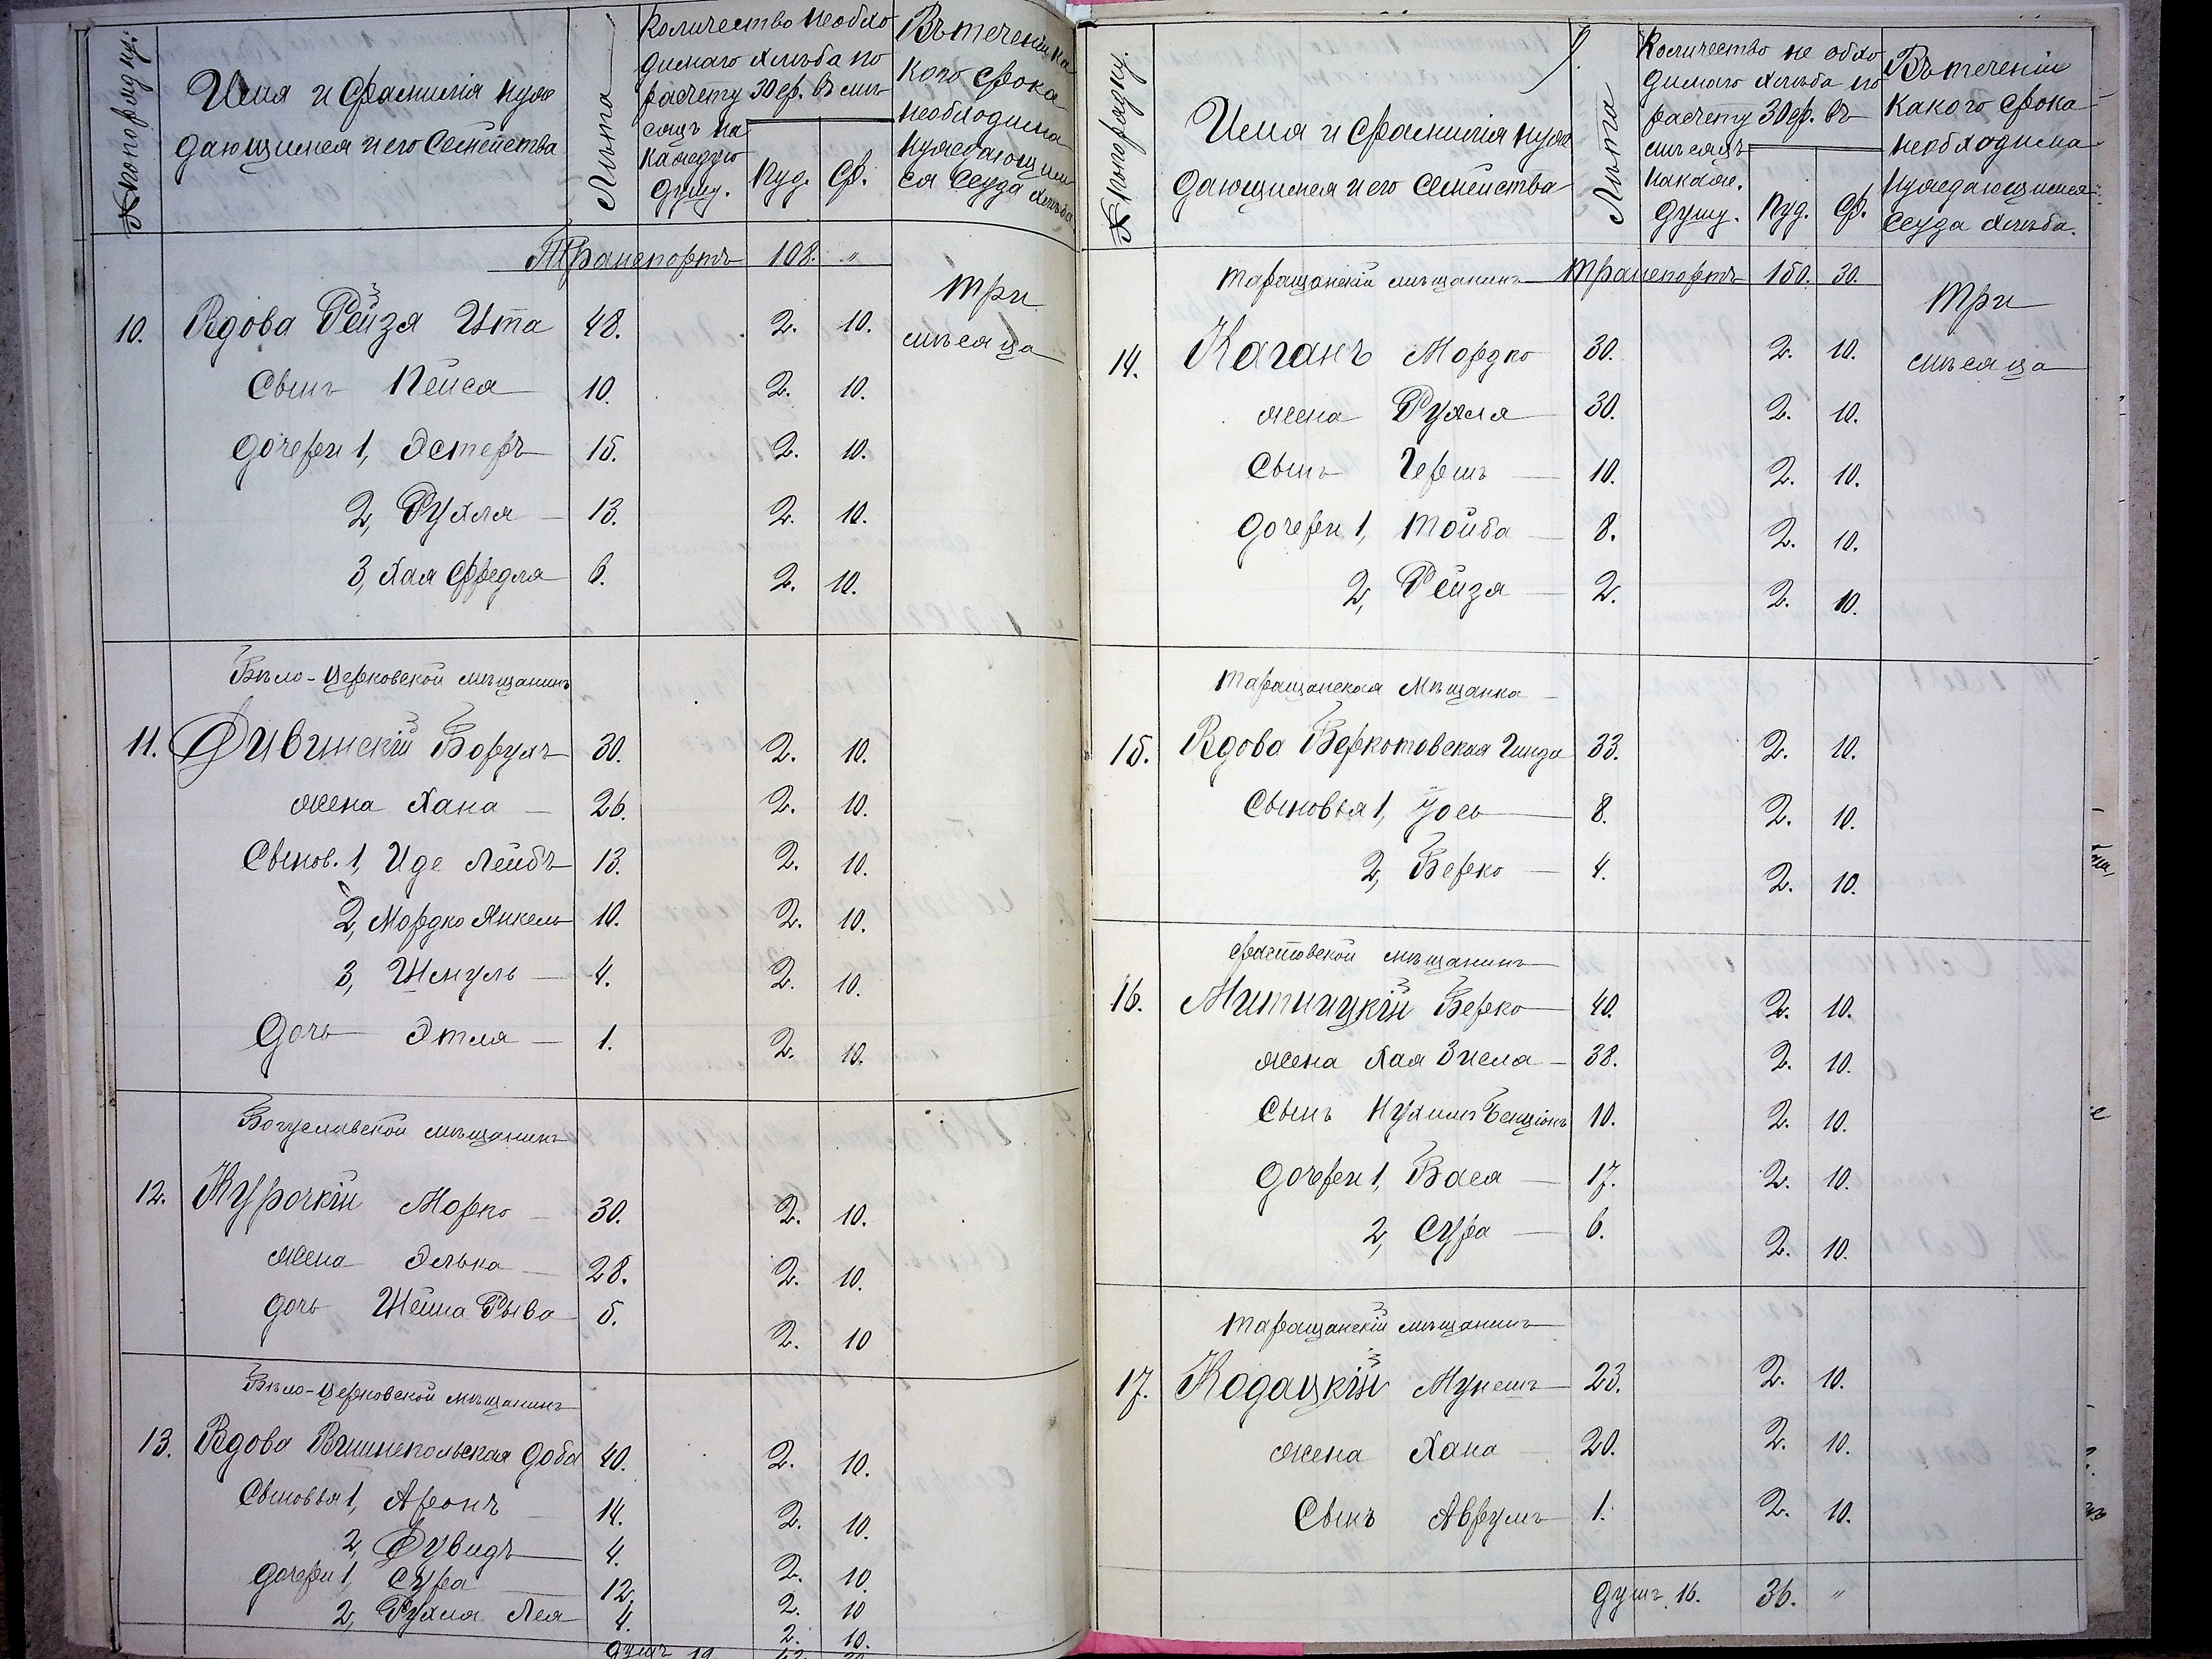 № по порядку.
Имя и фамилія нуж
дающимся и его Семейства
Лѣта
Количество необхо
димаго хлѣба по
расчету 30 ф. въ мѣ-
сяцъ на
каждую
душу.
Пуд.
Ф.
Въ теченіи ка
кого срока
необходима
нуждающим
ся ссуда хлѣба
Транспортъ 108. "
10. Вдова Рейза Ита 48. 2. 10. Три
мѣсяца
Сынъ Пейса 10. 2. 10.
Дочери 1, Эстеръ 15. 2. 10.
2, Рухля 13. 2. 10.
3, Хая Фредля 6. 2. 10.
Бѣло-Церковской мѣщанинъ
11. Дивинскій Борухъ 30. 2. 10.
жена Хана 26. 2. 10.
Сынов. 1, Иде Лейбъ 13. 2. 10.
2, Мордко Янкель 10. 2. 10.
3, Шмуль 4. 2. 10.
Дочь Этля 1. 2. 10.
Богуславской мѣщанинъ
12. Курочкій Морко 30. 2. 10.
жена Элька 28. 2. 10.
дочь Шейна Рыва 5. 2. 10
Бѣло-Церковской мѣщанинъ
13. Вдова Вишнепольская Доба 40. 2. 10.
Сыновья 1, Аронъ 14. 2. 10.
2, Дувидъ 4. 2. 10.
Дочери 1, Сура 12. 2. 10
2, Рухля Лея 4. 2. 10.
душъ 19.
№ по порядку.
Имя и фамилія нуж
дающимся и его Семейства
Лѣта
9.
Количество не обхо
димаго хлѣба по
расчету 30 ф. въ
мѣсяцъ
на каж.
душу.
Пуд.
Ф.
Въ теченіи
какого срока
необходима
нуждающимся
ссуда хлѣба.
Таращанскій мѣщанинъ Транспортъ 150. 30.
14. Каганъ Мордко 30. 2. 10. Три
мѣсяца
жена Рухля 30. 2. 10.
Сынъ Гершъ 10. 2. 10.
Дочери 1, Тойба 8. 2. 10.
2, Рейза 2. 2. 10.
Таращанская Мѣщанка
15. Вдова Беркотовская Гинда 33. 2. 10.
Сыновья 1, Іось 8. 2. 10.
2, Берко 4. 2. 10.
Фастовской мѣщанинъ
16. Митницкій Берко 40. 2. 10.
жена Хая Зисла 38. 2. 10.
Сынъ Нухимъ Бенціонъ 10. 2. 10.
Дочери 1, Бася 17. 2. 10.
2, Сура 6. 2. 10.
Таращанскій мѣщанинъ
17. Кодацкій Мунешъ 23. 2. 10.
жена Хана 20. 2. 10.
Сынъ Аврумъ 1. 2. 10.
душъ 16. 36. "